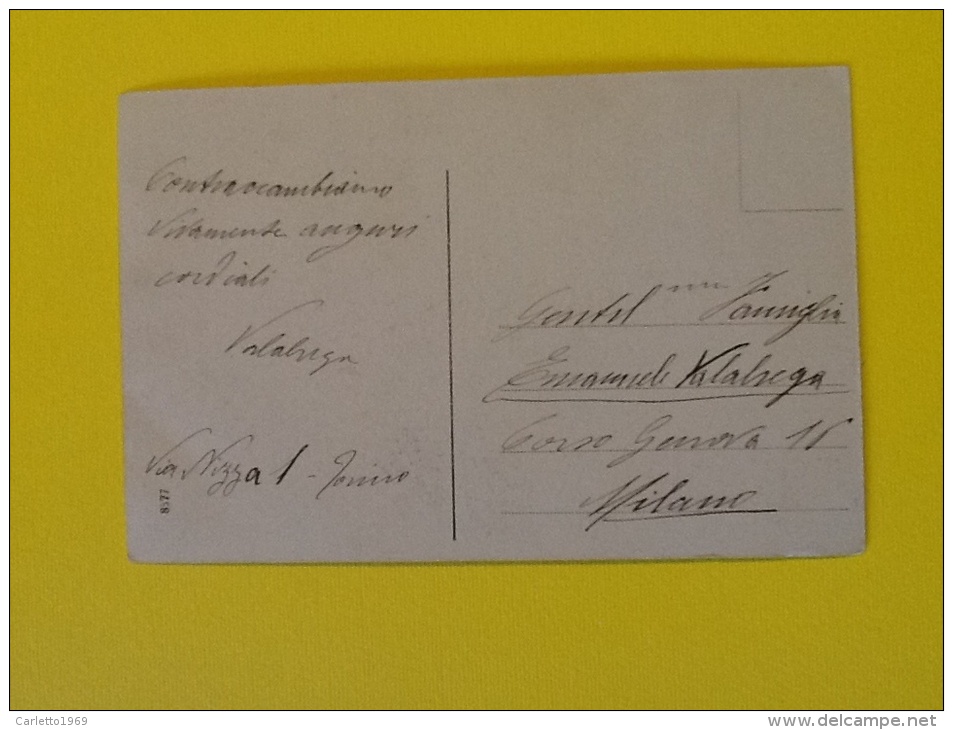 Contraccambiamo
vivamente auguri
cordiali
Valabrega
Via Nizza 1 - Torino
8577
Gentil mma Famiglia
Emanuele Valabrega
Corso Genova 16
Milano
Carletto1969
www.delcampe.net